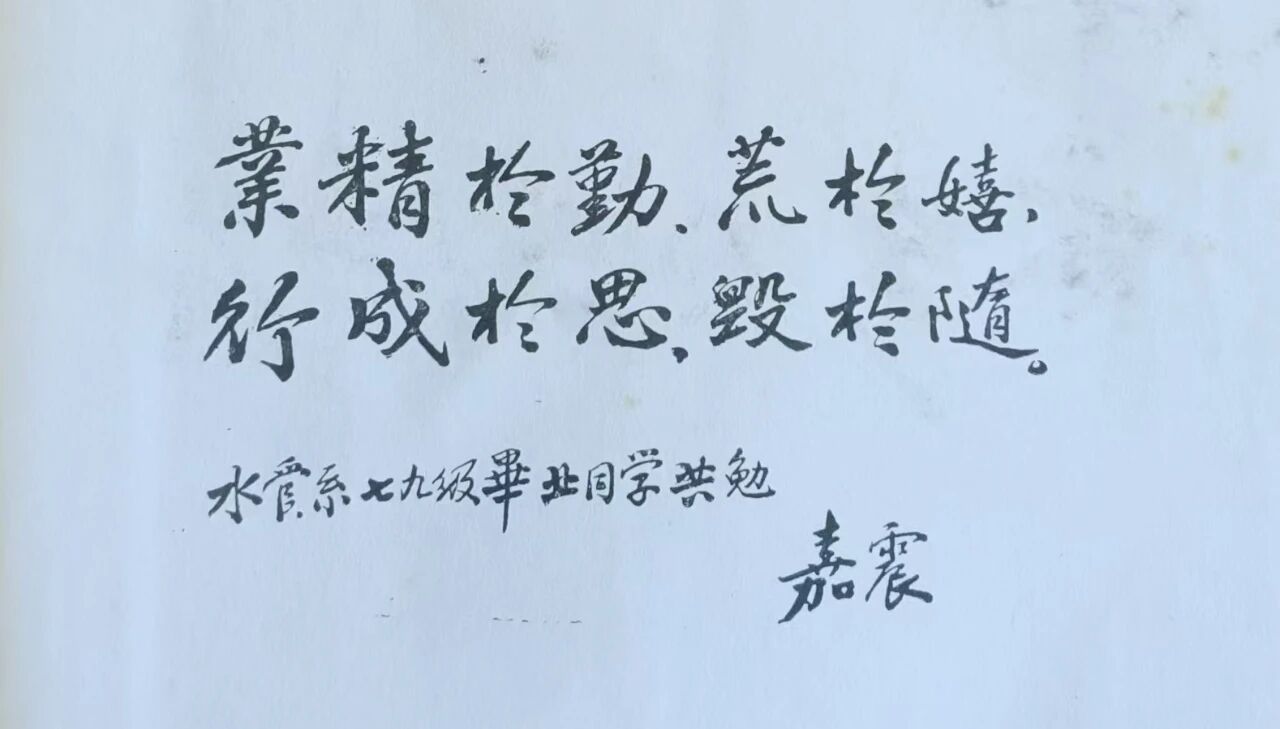 業精於勤、荒於嬉、
行成於思、毀於随。
水資系七九级畢业同学共勉
嘉震